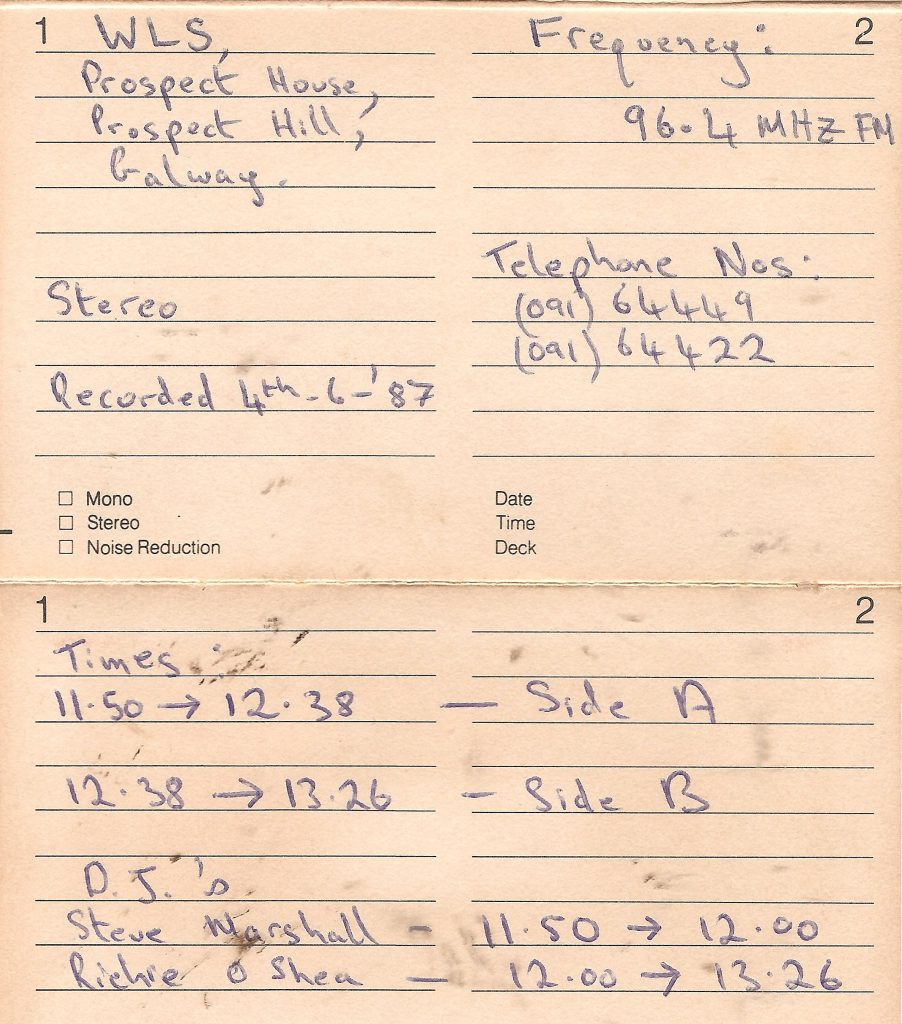 1 WLS,
Prospect House,
Prospect Hill,
Galway.
Stereo
Recorded 4th-6-'87
☐ Mono
☐ Stereo
☐ Noise Reduction
Frequency: 2
96.4 MHz FM
Telephone Nos:
(091) 64449
(091) 64422
Date
Time
Deck
1 2
Times:
11.50 → 12.38 — Side A
12.38 → 13.26 — Side B
D.J.'s
Steve Marshall - 11.50 → 12.00
Richie O Shea — 12.00 → 13.26